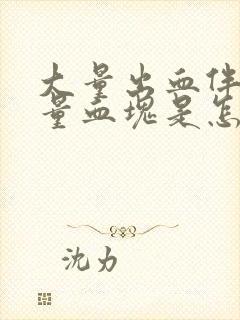 大量出血伴
量血块是怎
沈力